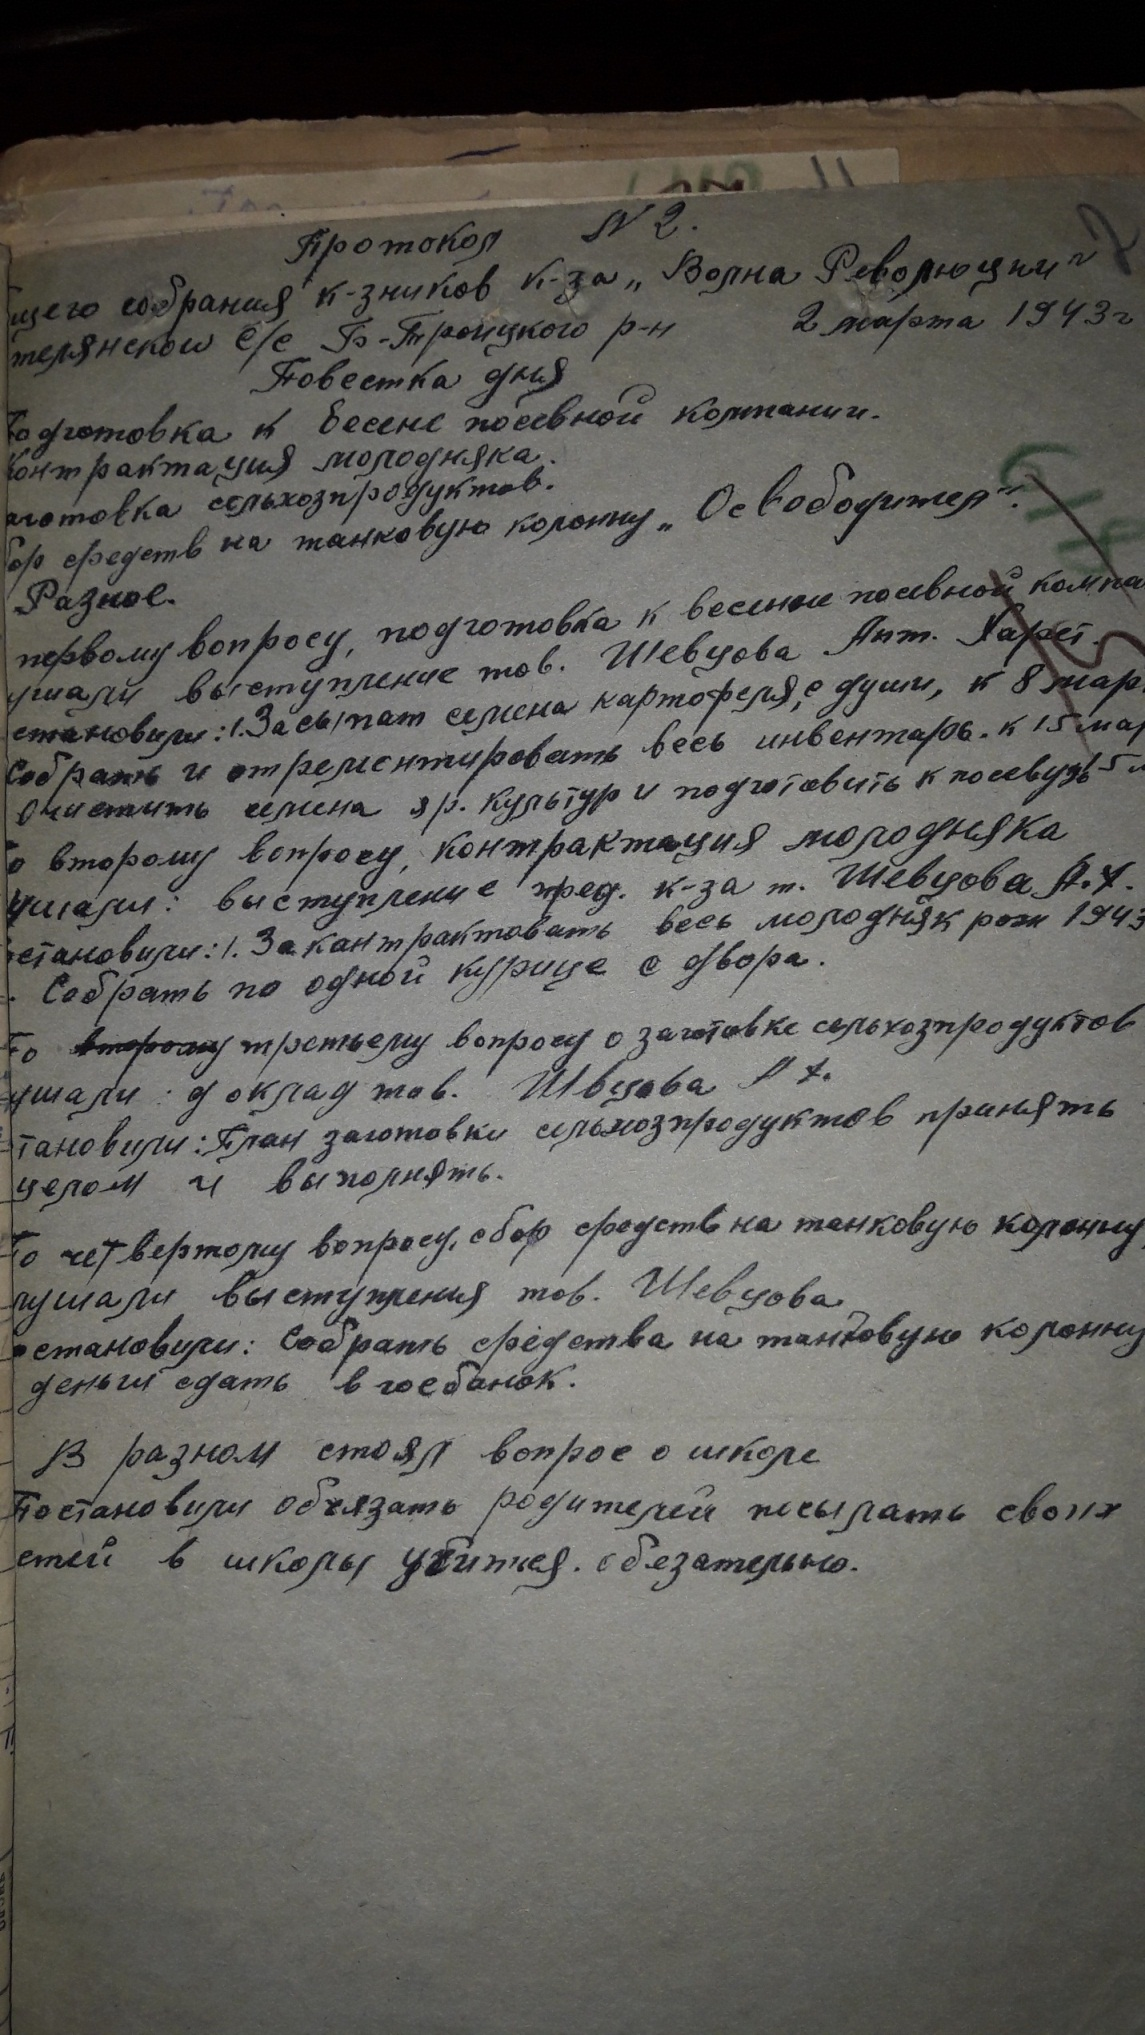 Протокол N 2.
щего собрания к-зников к-за „Волна Революции"
телянской с/с Б-Троицкого р-н 2 марта 1943 г
Повестка дня
одготовка к весене посевной компании.
Контрактация молодняка.
аготовка сельхозпродуктов.
бор средств на танковую колонну „Освободитель".
Разное.
первому вопросу, подготовка к весенне посевной компа
ушали выступление тов. Шевцова Ант. Харет.
становили: 1. Засыпат семена картофеля, с души, к 8 мар
Собрать и отремонтировать весь инвентарь. к 15 мар
Очистить семена яр. культур и подготовить к посеву 15 м
о второму вопросу, контрактация молодняка
ушали: выступление пред. к-за т. Шевцова А.Х.
остановили: 1. Законтрактовать весь молодняк рож 1943
. Собрать по одной курице с двора.
По второму третьему вопросу о заготовке сельхозпродуктов
ушали: доклад тов. Швцова А Х.
тановили: План заготовки сельхозпродуктов принять
целом и выполнять.
По четвертому вопросу, сбор средств на танковую колонну
лушали выступления тов. Шевцова
остановили: Собрать средства на танковую колонну
деньги сдать в госбанок.
В разном стоял вопрос о школе
Постановили обязать родителей посылать своих
етей в школы учится. обезательно.